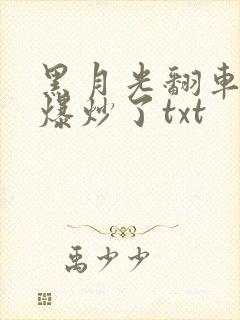 黑月光翻车
爆炒了txt
禹少少